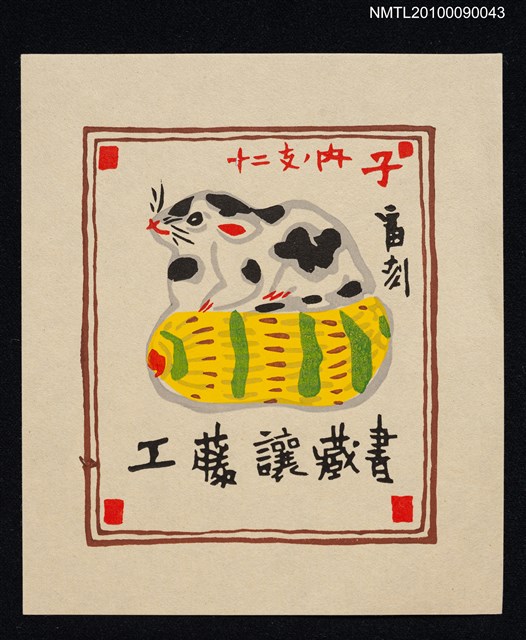 NMTL20100090043
十二支ノ内 子
刻
工藤讓藏書